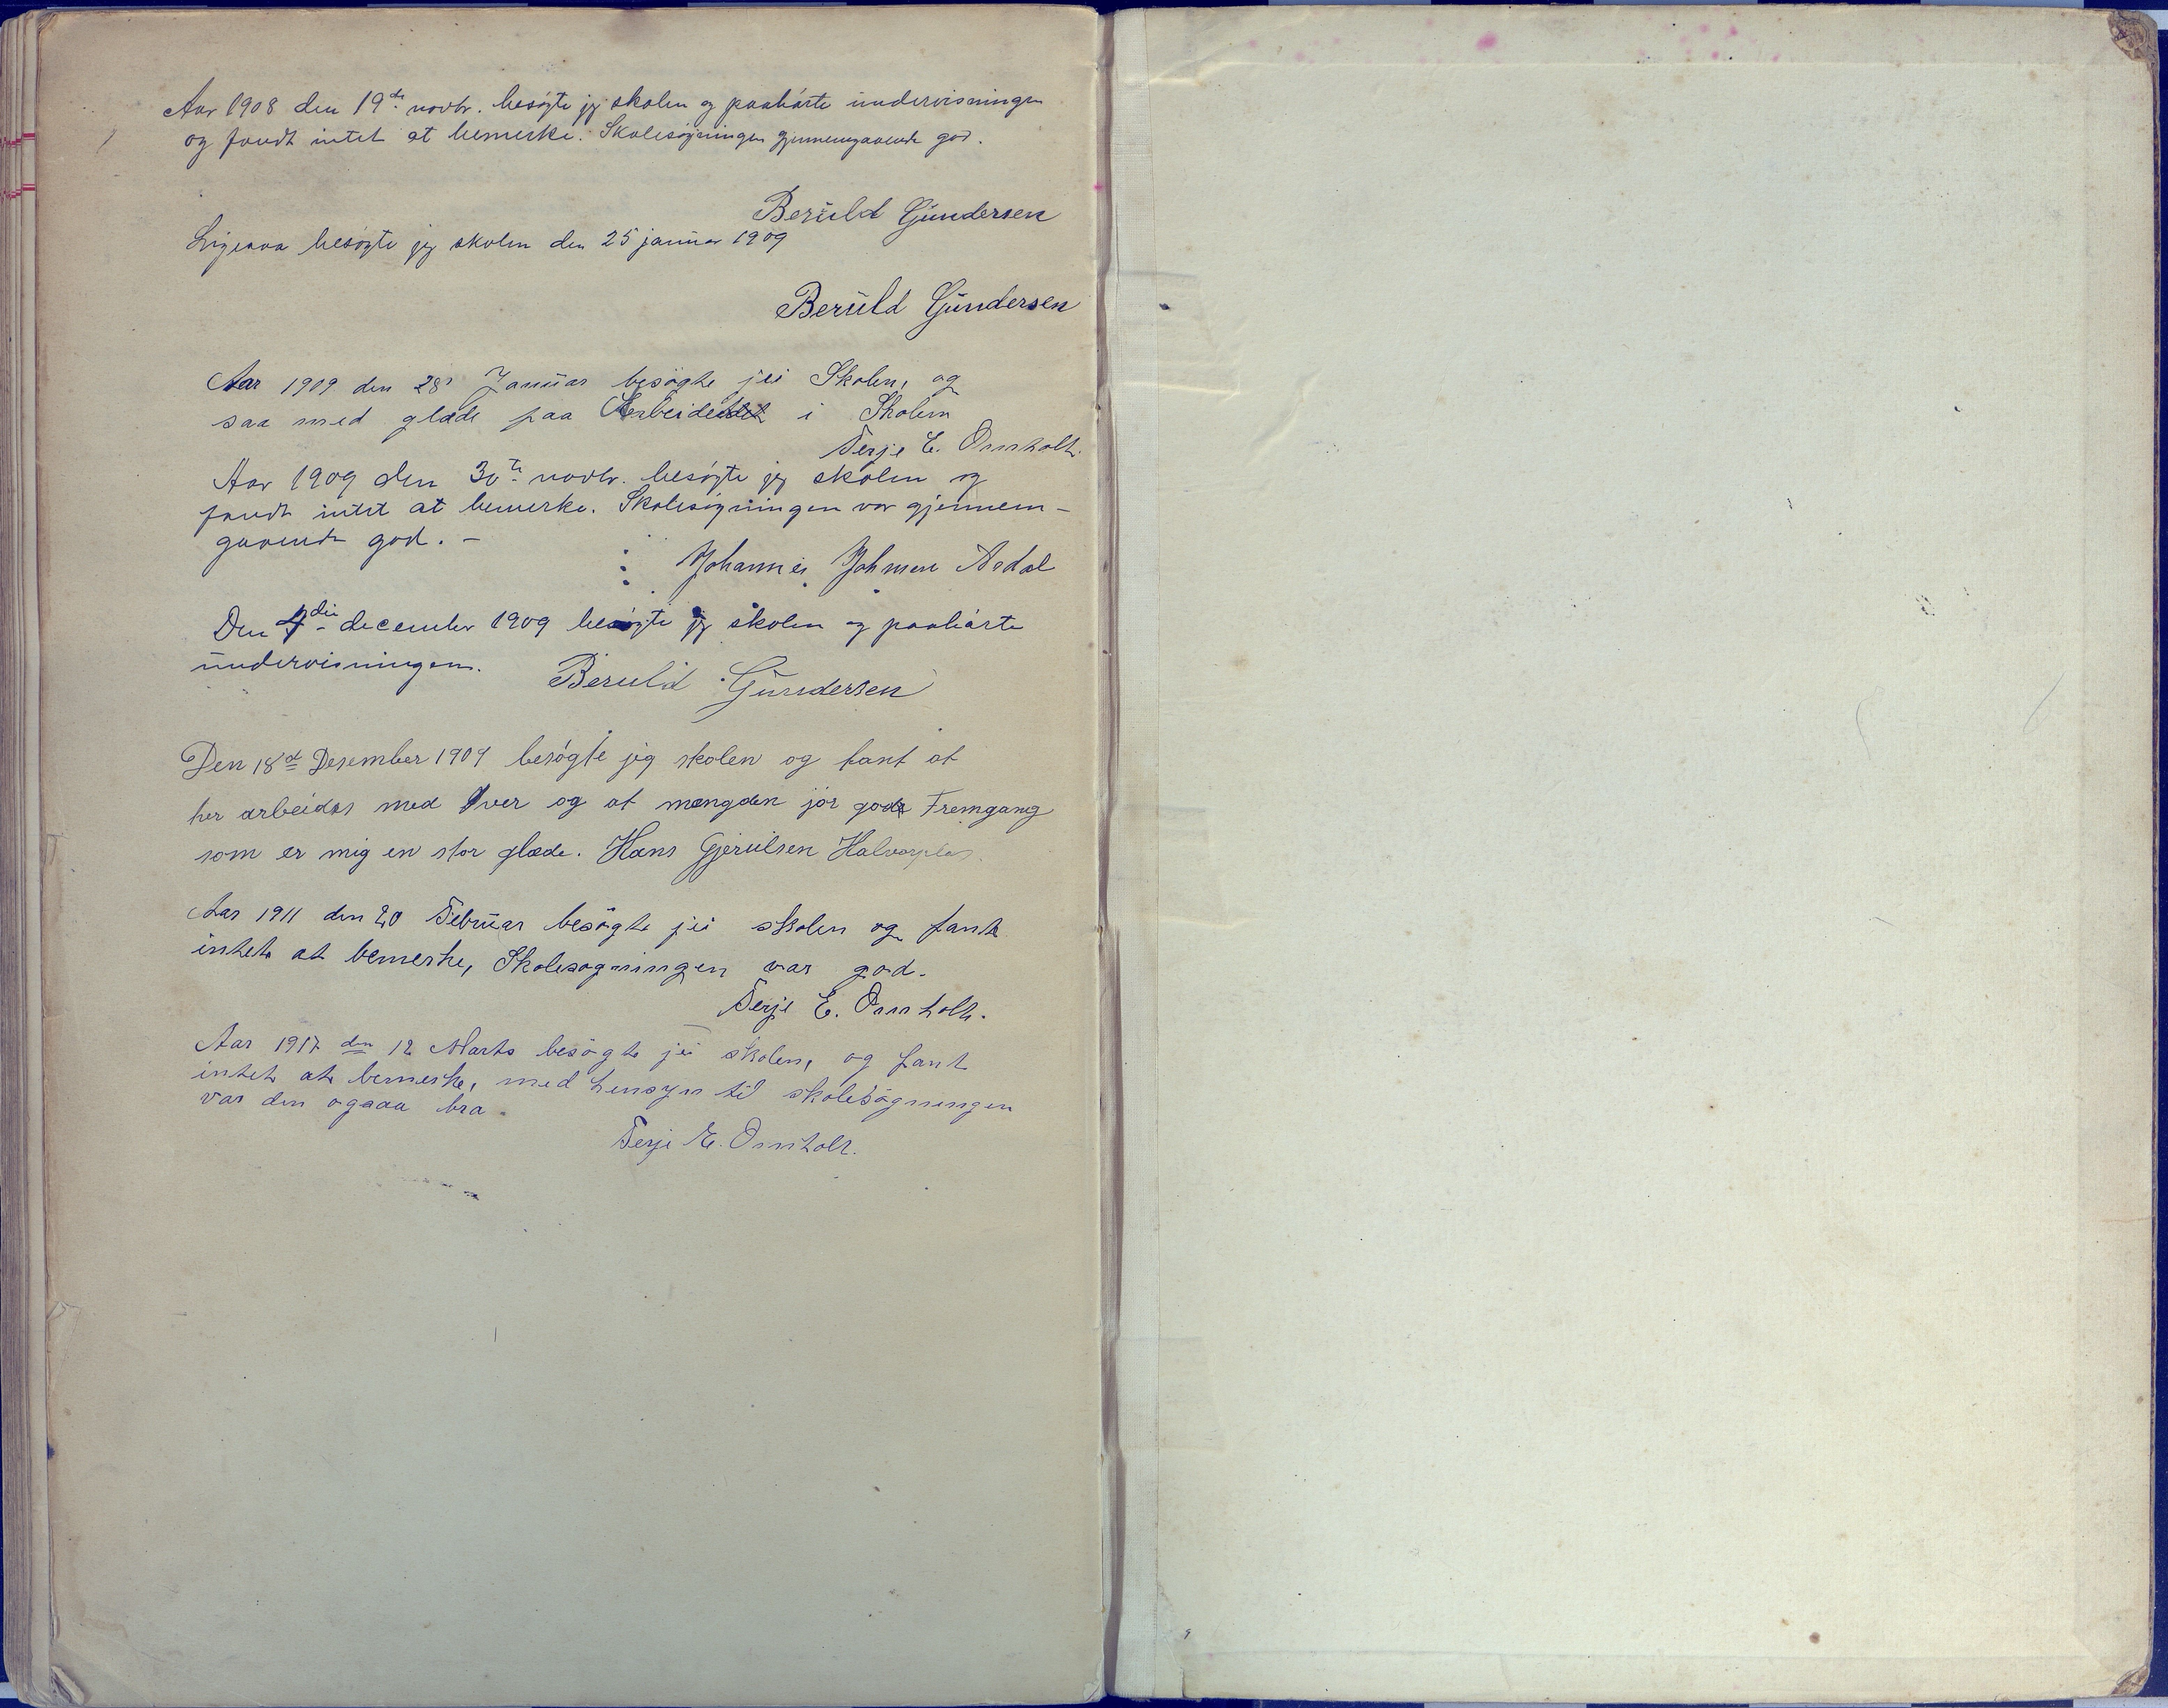 Aar 1908 den 19de novbr. besøgte jeg skolen og paahørte undervisningen
og fandt intet at bemerke. Skolesøgningen gjennemgaaende god.
Beruld Gundersen
Ligesaa besøgte jeg skolen den 25 januar 1909
Beruld Gundersen
Aar 1909 den 28 Januar besøgte jei Skolen, og
saa med glæde paa Arbeidet i Skolen
Terje E. Omholt.
Aar 1909 den 30te novbr. besøgte jeg skolen og
fandt intet at bemerke. Skolesøgningen var gjennem-
gaaende god. -
Johannes Johnsen Aadal
Den 4die december 1909 besøgte jeg skolen og paahørte
undervisningen. Beruld Gundersen
Den 18de Desember 1909 besøgte jeg skolen og fant at
her arbeides med Iver og at mængden jør gode Fremgang
som er mig en stor glæde. Hans Gjerulsen
Aar 1911 den 20 Februar besøgte jei skolen og fant
intet at bemerke, Skolesøgningen var god.
Terje E. Omholt.
Aar 1912 den 12 Marts besøgte jei skolen, og fant
intet at bemerke, med hensyn til skolesøgningen
var den ogsaa bra.
Terje E. Omholt.